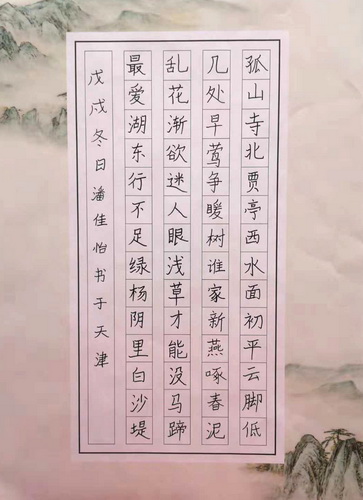 孤山寺北贾亭西水面初平云脚低
几处早莺争暖树谁家新燕啄春泥
乱花渐欲迷人眼浅草才能没马蹄
最爱湖东行不足绿杨阴里白沙堤
戊戌冬日潘佳怡书于天津